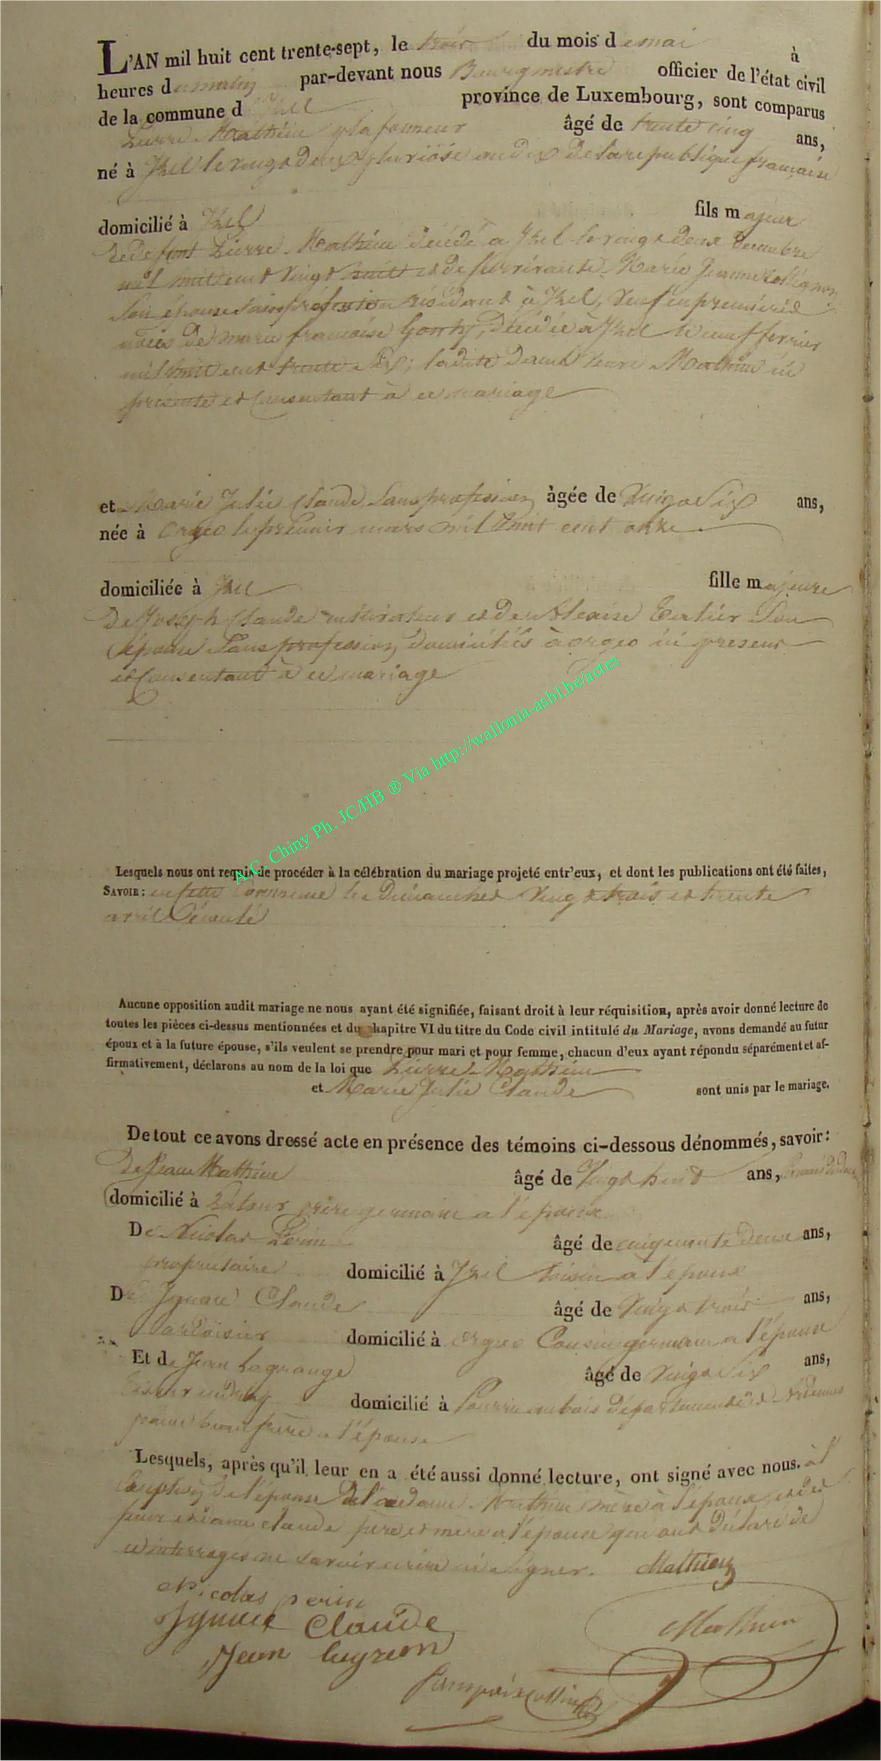 L'AN mil huit cent trente-sept, le trois du mois de mai à
heures du matin par-devant nous Bourgmestre officier de l'état civil
de la commune d Izel province de Luxembourg, sont comparus
Pierre Mathieu plafonneur âgé de trente cinq ans,
né à Izel le vingt deux pluviôse an dix de la république française
domicilié à Izel fils majeur
de defunt Pierre Mathieu décédé à Izel le vingt deux Decembre
mil huit cent vingt huit et de survivante Marie Jeanne
son épouse sans profession résidant à Izel, veuf en premières
noces de marie françoise Gonry, Décédée à Izel le neuf fevrier
mil huit cent trente six; ladite Dame veuve Mathieu ici
presente et consentant à ce mariage
et Marie Julie Claude sans profession âgée de vingt six ans,
née à Orgeo le premier mars mil huit cent onze
domiciliée à Izel fille majeure
De Joseph Claude cultivateur et de son
épouse sans profession, domiciliés à orgeo ici presens
et consentant à ce mariage
A.C. Chiny Ph. JC/HB ® Via http://wallonia-asbl.be/actes
Lesquels nous ont requis de procéder à la célébration du mariage projeté entr'eux, et dont les publications ont été faites,
SAVOIR: en cette commune les Dimanches vingt trois et trente
avril écoulé
Aucune opposition audit mariage ne nous ayant été signifiée, faisant droit à leur réquisition, après avoir donné lecture de
toutes les pièces ci-dessus mentionnées et du chapitre VI du titre du Code civil intitulé du Mariage, avons demandé au futur
époux et à la future épouse, s'ils veulent se prendre pour mari et pour femme, chacun d'eux ayant répondu séparément et af-
firmativement, déclarons au nom de la loi que Pierre Mathieu
et Marie Julie Claude sont unis par le mariage.
De tout ce avons dressé acte en présence des témoins ci-dessous dénommés, savoir:
De Jean Mathieu âgé de vingt huit ans,
domicilié à frère germain a l'epoux
De Nicolas Perin âgé de cinquante deux ans,
propriétaire domicilié à Izel voisin a l'epoux
De Ignace Claude âgé de vingt trois ans,
ardoisier domicilié à orgeo Cousin germain a l'épouse
Et de Jean Lagrange âgé de vingt six ans,
domicilié à Pourru aubois département des Ardennes
beau frère a l'épouse
Lesquels, après qu'il leur en a été aussi donné lecture, ont signé avec nous. à l'
exception de l'épouse de la dame Mathieu mère à l'epoux, et des
père et mere a l'épouse qui ont déclaré de
ce interrogés ne savoir ecrire ni signer. Mathieu
Nicolas perin
Ignace Claude Mathieu
Jean